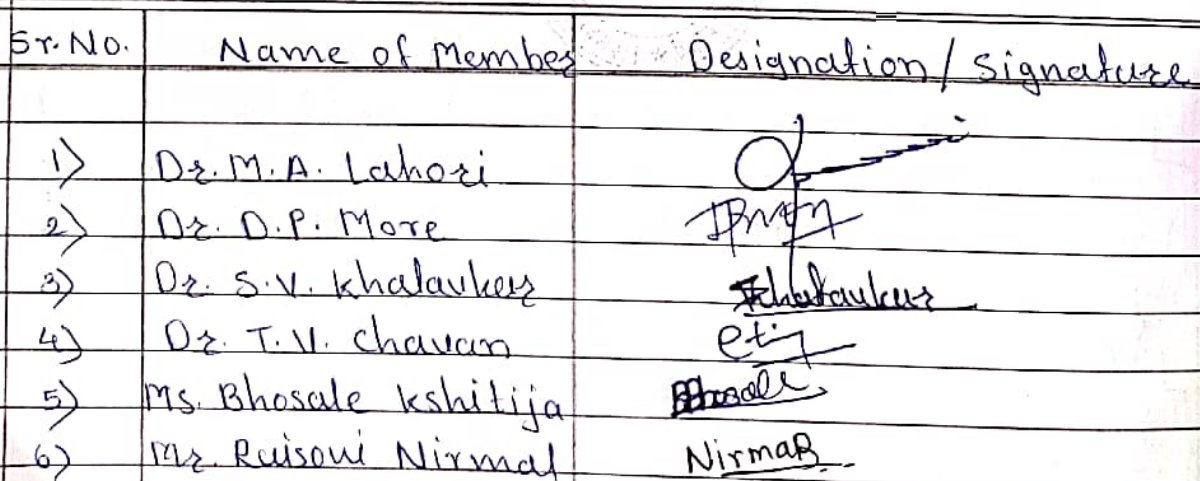 Sr. No. Name of Member Designation / Signature
1) Dr. M. A. Lahori
2) Dr. D. P. More
3) Dr. S. V. Khatavker Khatavkar
4) Dr. T. V. Chavan
5) Ms. Bhosale Kshitija Bhosale
6) Mr. Raisoni Nirmal NirmaR